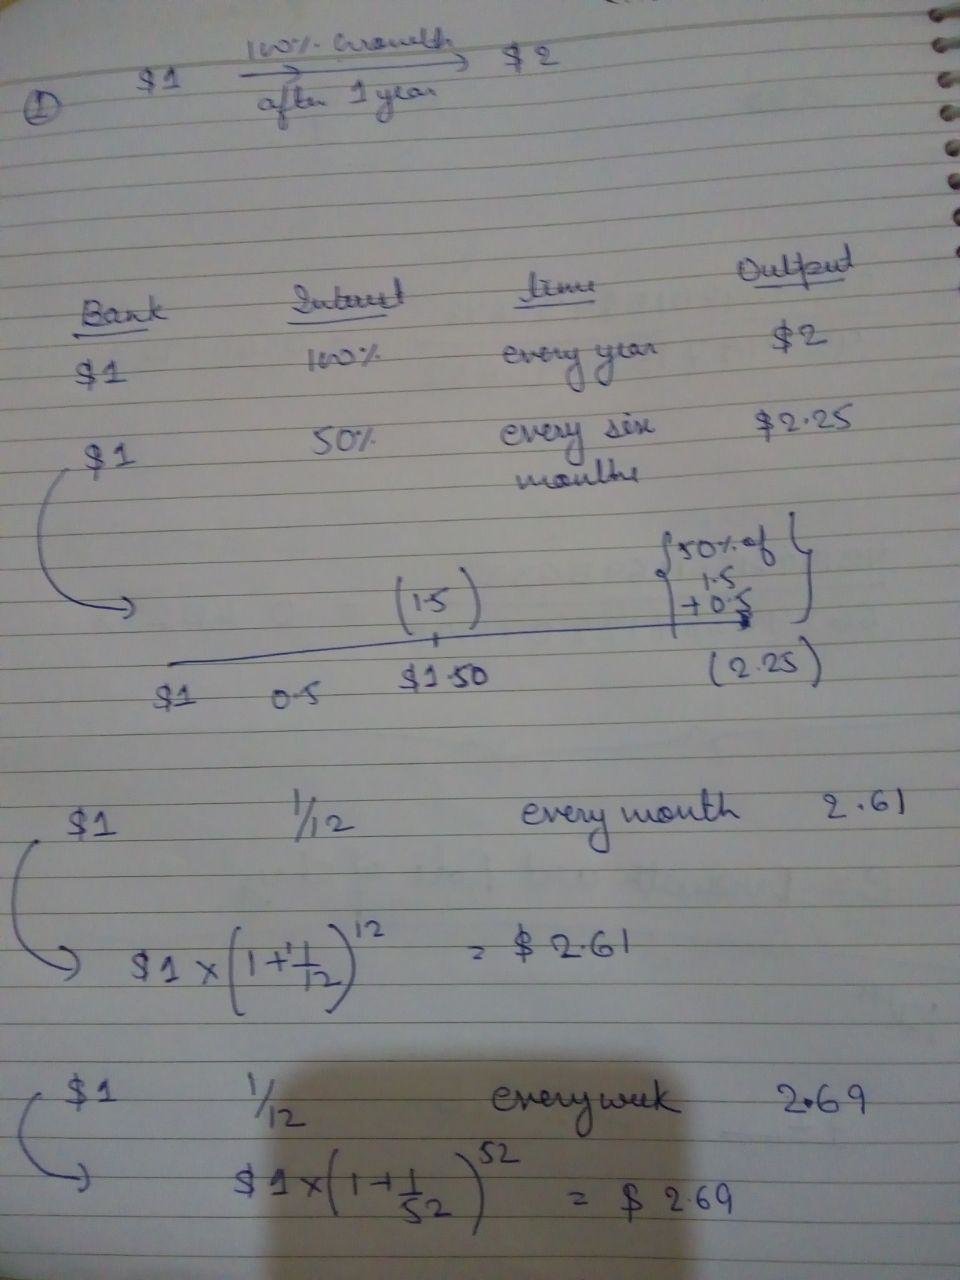 100% Growth
① $1 ⟶ $2
after 1 year
Bank Interest time Output
$1 100% every year $2
$1 50% every six $2.25
months
{50% of}
(1.5) 1.5
+0.5
$1 0.5 $1.50 (2.25)
$1 1/12 every month 2.61
$1 × (1+1/12)^12 = $2.61
$1 1/12 every week 2.69
$1 × (1+1/52)^52 = $2.69